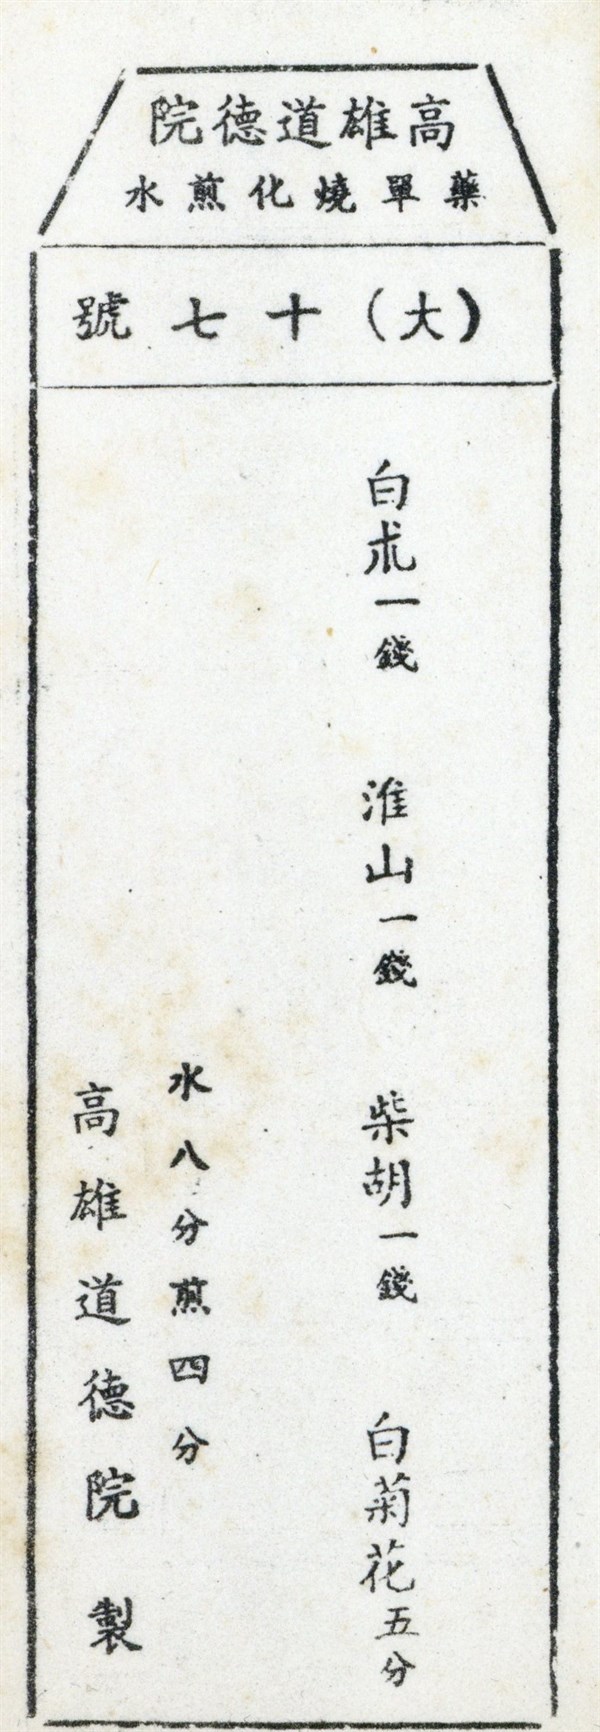 高雄道德院
藥單燒化煎水
(大)十七號
白朮一錢　淮山一錢　柴胡一錢　白菊花五分
水八分煎四分
高雄道德院製